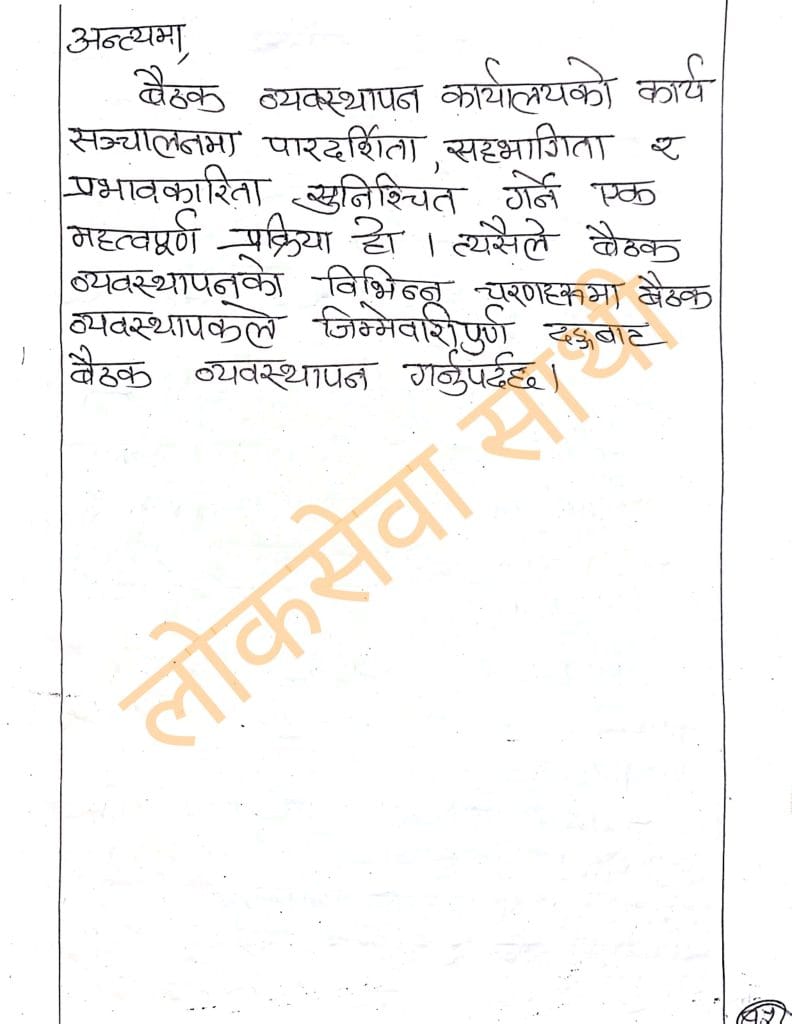 अन्त्यमा,
बैठक व्यवस्थापन कार्यालयको कार्य
सञ्चालनमा पारदर्शिता, सहभागिता र
प्रभावकारिता सुनिश्चित गर्ने एक
महत्वपूर्ण प्रक्रिया हो । त्यसैले बैठक
व्यवस्थापनको विभिन्न चरणहरूमा बैठक
व्यवस्थापकले जिम्मेवारीपुर्ण ढङ्गबाट
बैठक व्यवस्थापन गर्नुपर्दछ ।
लोकसेवा साथी